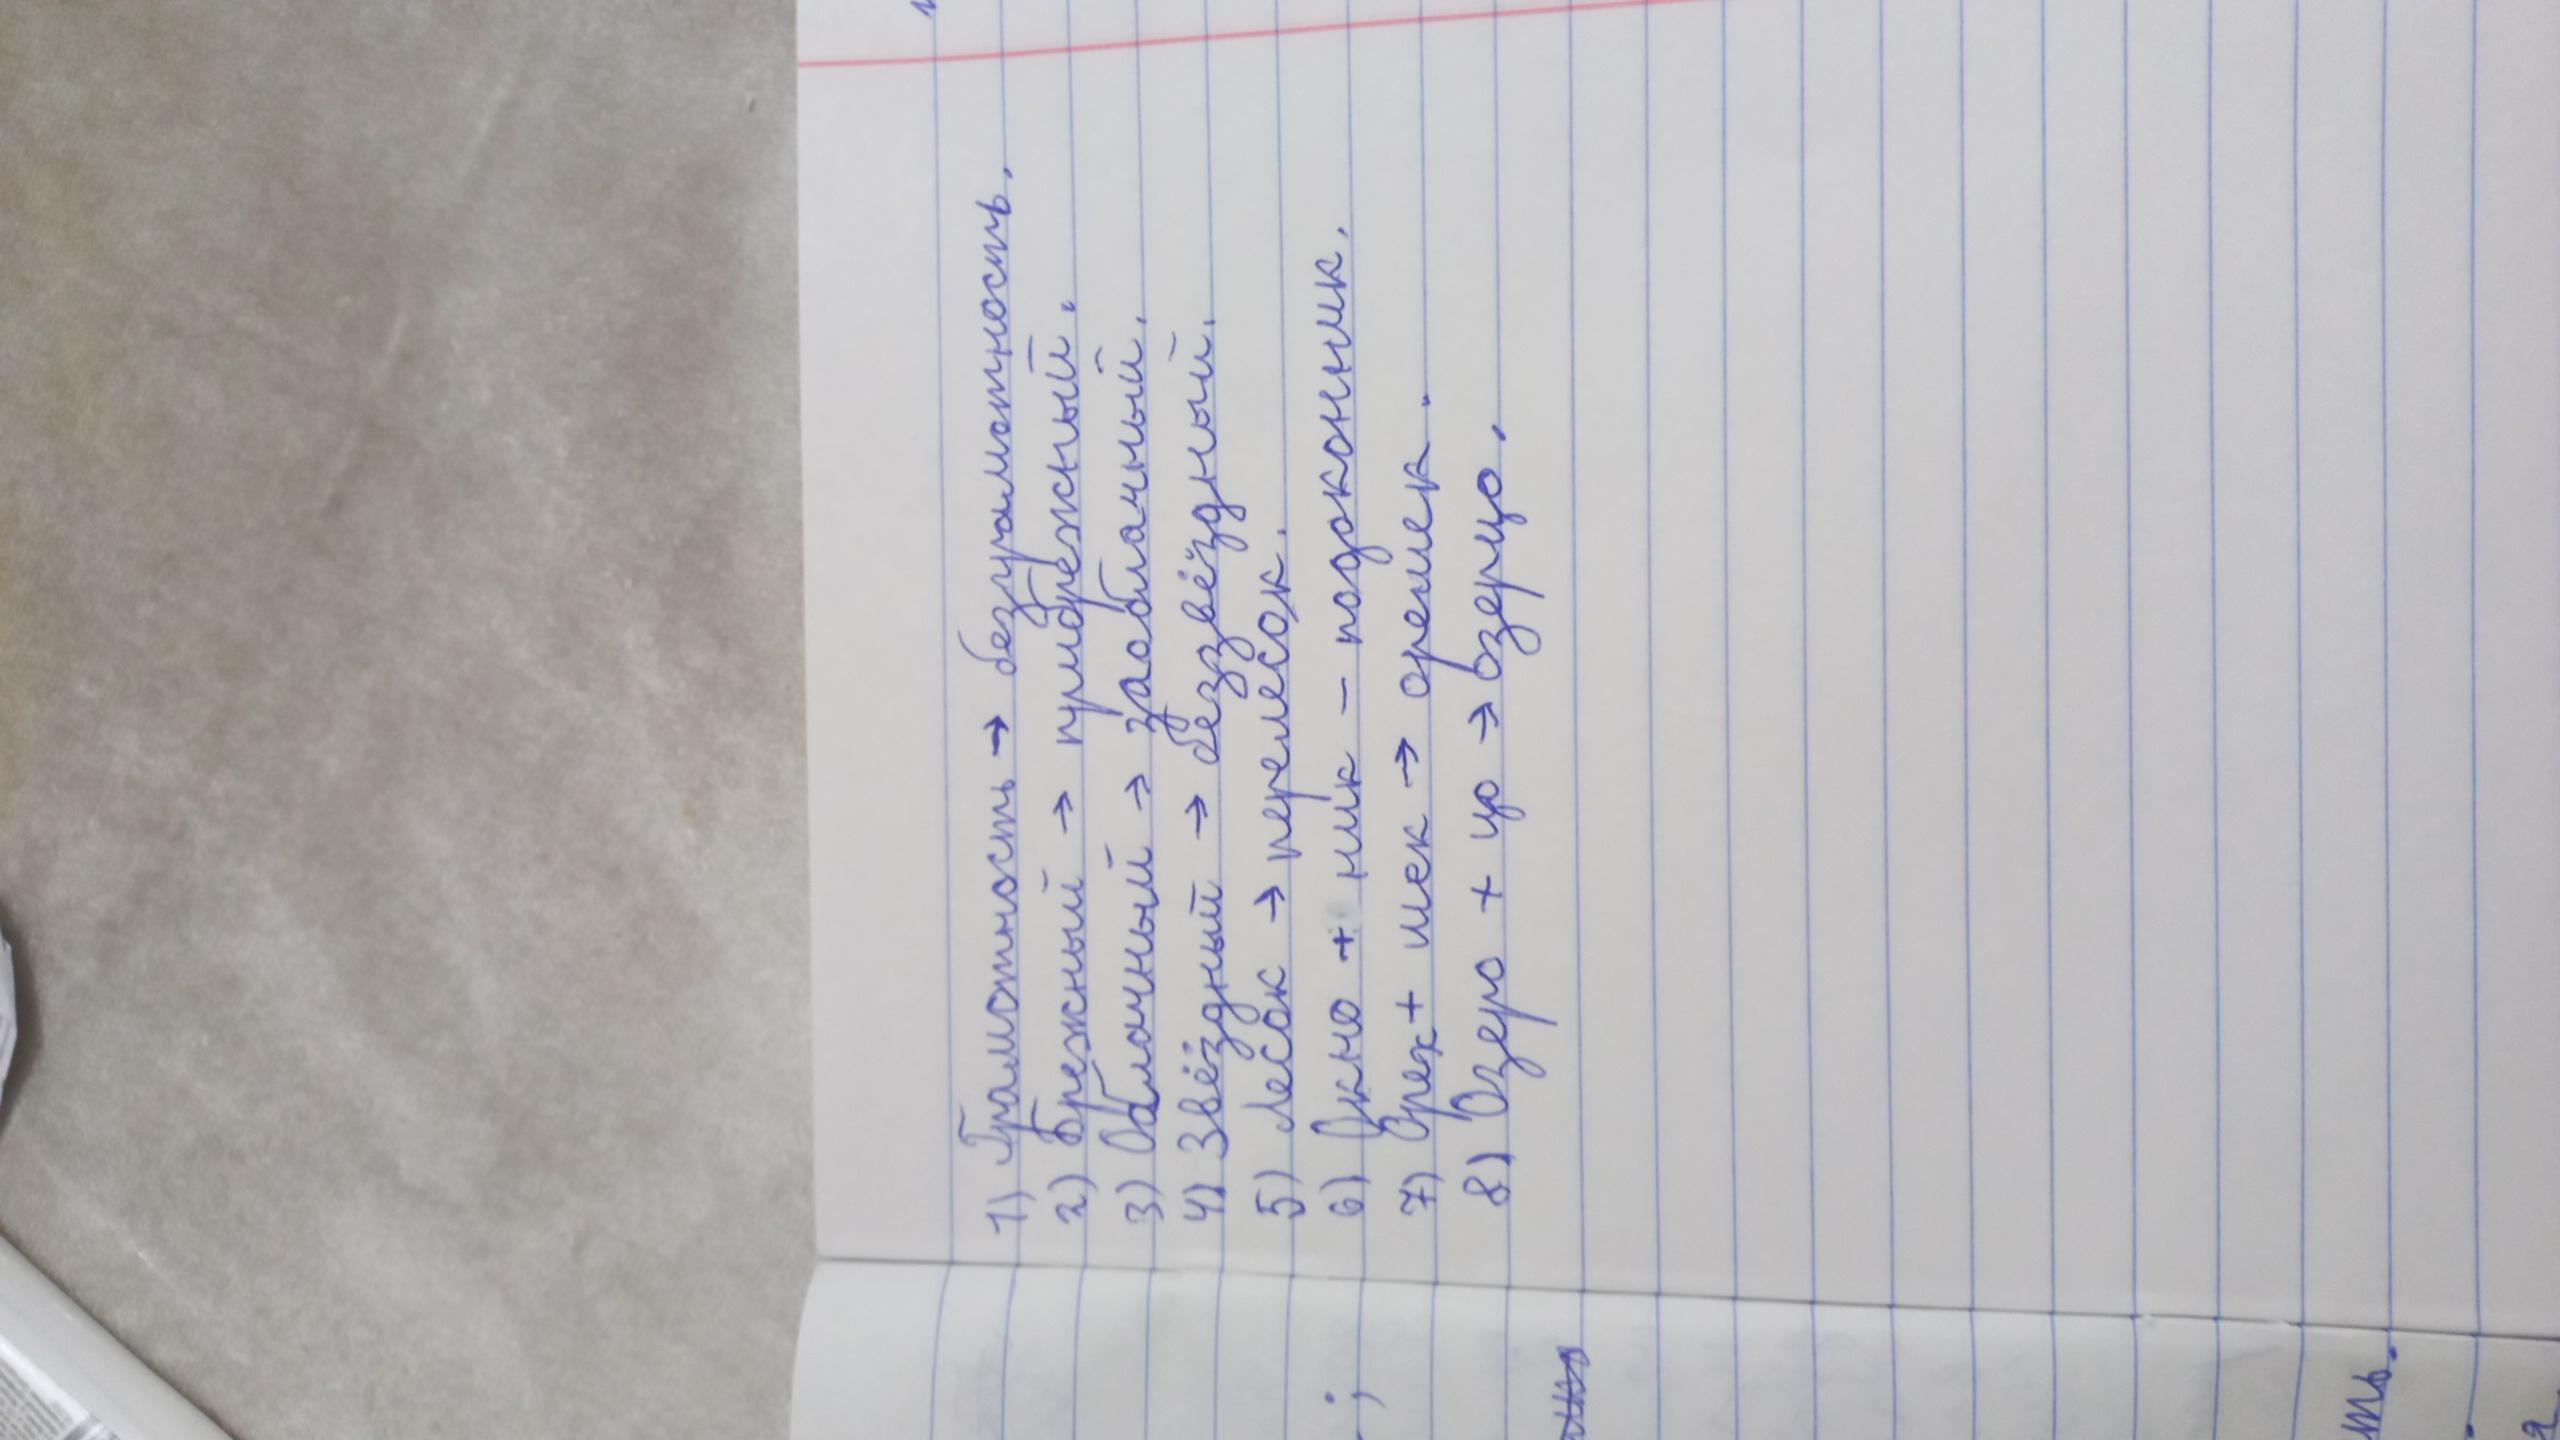 1) Грамотность → безграмотность.
2) Брежный → прибрежный.
3) Облачный → заоблачный.
4) Звёздный → беззвёздный.
5) Лесок → перелесок.
6) Окно + ник – подоконник.
7) Орех + шек → орешек.
8) Озеро + цо → озерцо.
ть.